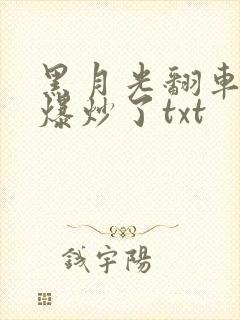 黑月光翻車
爆炒了txt
錢宇陽